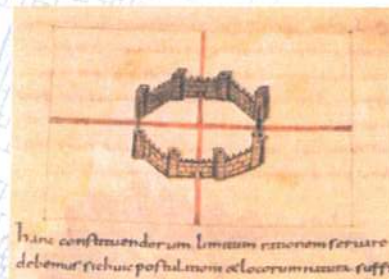 hanc constituendorum limitum rationem servare
debemus si huic postulationi & locorum natura suff